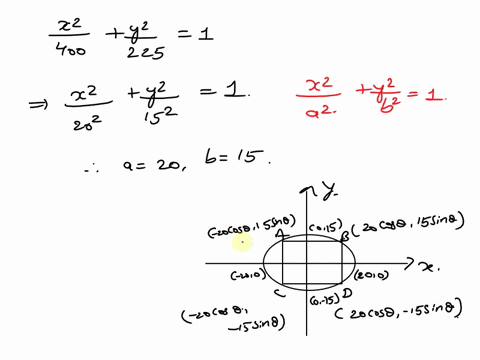 x²/400 + y²/225 = 1
⇒ x²/20² + y²/15² = 1. x²/a² + y²/b² = 1.
∴ a = 20, b = 15.
y
(-20cosθ, 15sinθ) (0,15) (20cosθ, 15sinθ)
A B
(-20,0) (20,0) x.
C (0,-15) D
(-20cosθ, -15sinθ) (20cosθ, -15sinθ)